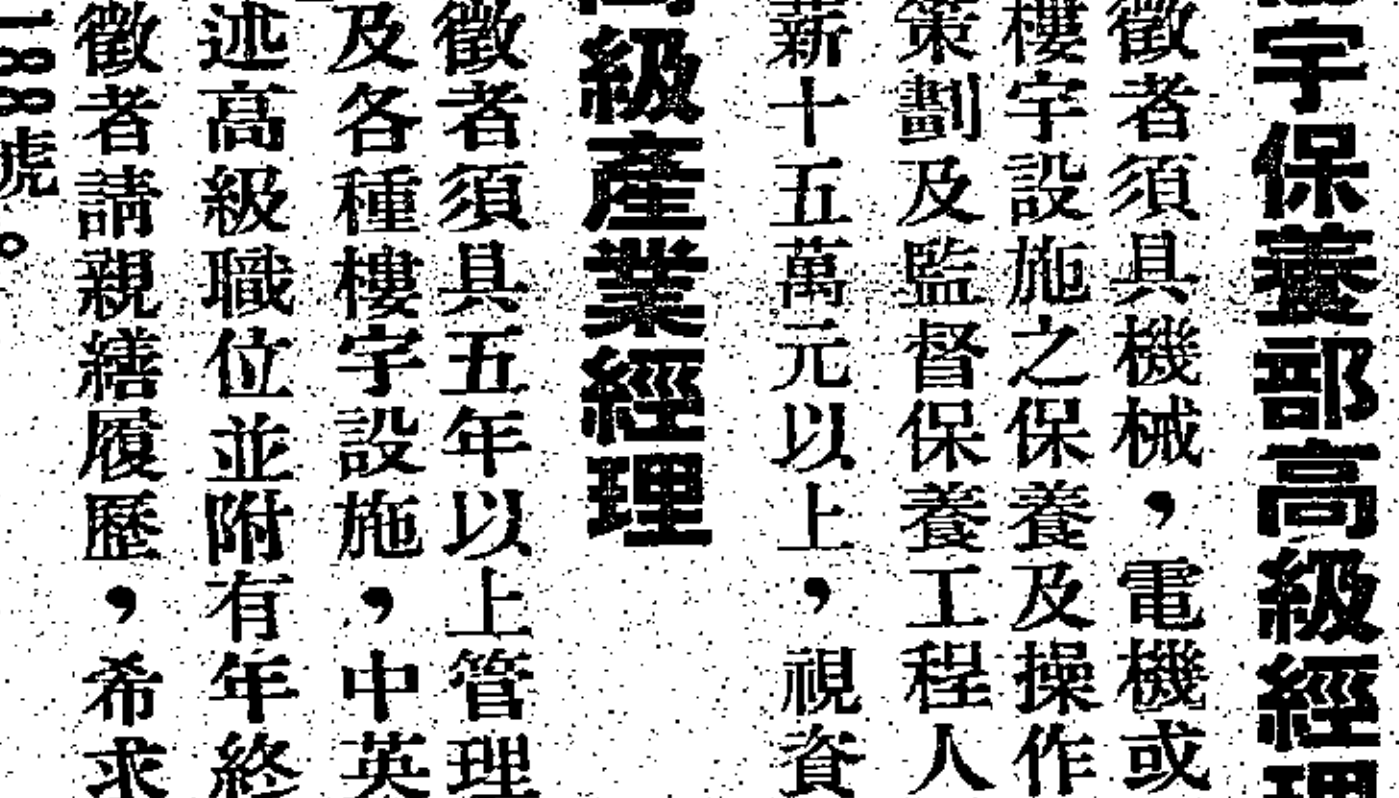 宇保養部高級經理
徵者須具機械，電機或
樓宇設施之保養及操作
策劃及監督保養工程人
薪十五萬元以上，視資
級產業經理
徵者須具五年以上管理
及各種樓宇設施，中英
述高級職位並附有年終
徵者請親繕履歷，希求
188號。